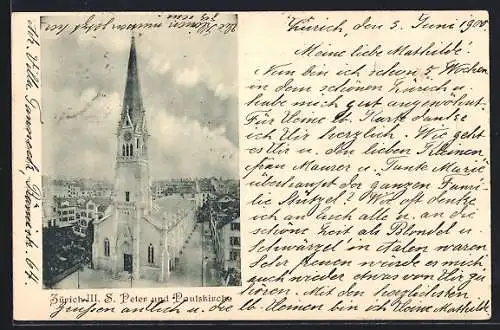 Zürich, den 5. Juni 1900
Meine liebe Mathilde!
Nun bin ich schon 5 Wochen
in dem schönen Zürich u.
habe mich gut angewöhnt.
Für Deine lb. Karte danke
ich Dir herzlich. Wie geht
es Dir u. den lieben Kleinen
frau Maurer u. Tante Marie
überhaupt der ganzen Fami-
lie Stützel? Wol oft denke
ich an Euch alle u. an die
schöne Zeit als Blondel u.
Schwärzel in Aalen waren
Sehr freuen würde es mich
auch wieder etwas von Dir zu
hören. Mit den herzlichsten
Grüssen an Dich u. die lb. Deinen bin ich Deine Mathilde
Zürich III. S. Peter und Paulskirche